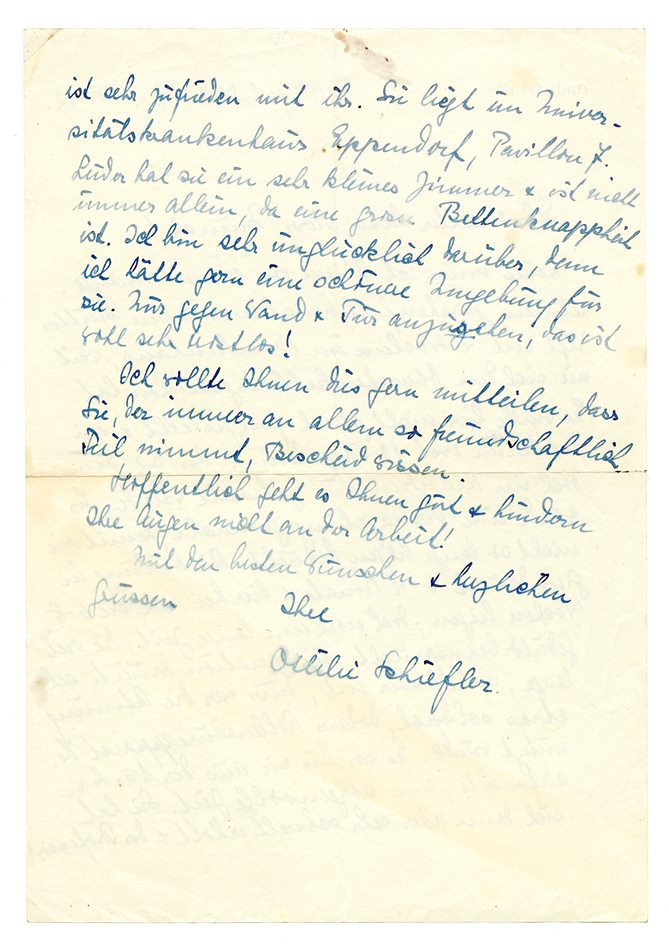 ist sehr zufrieden mit ihr. Sie liegt im Univer-
sitätskrankenhaus Eppendorf, Pavillon 7.
Leider hat sie ein sehr kleines Zimmer & ist nicht
immer allein, da eine grosse Bettenknappheit
ist. Ich bin sehr unglücklich darüber, denn
ich hätte gern eine schönere Umgebung für
sie. Nur gegen Wand & Tür anzugehen, das ist
wohl sehr trostlos!
Ich wollte Ihnen dies gern mitteilen, dass
Sie, der immer an allem so freundschaftlich
Teil nimmt, Bescheid wissen.
Hoffentlich geht es Ihnen gut & hindern
Ihre Augen nicht an der Arbeit!
Mit den besten Wünschen & herzlichen
Grüssen Ihre
Ottilie Schiefler.